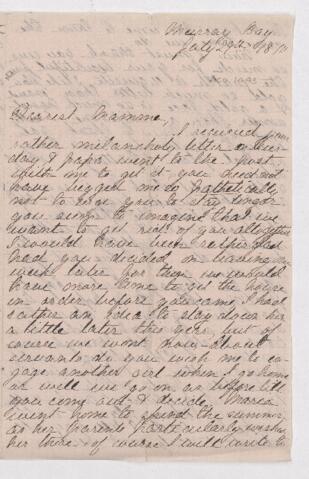 Murray Bay
July 29th
Dearest Mamma,
I received your
rather melancholy letter on
day & papa went to the post
with me to get it you need not
have begged me so pathetically
not to urge you to stay longer
you seem to imagine that we
want to get rid of you altogether
I would have been rather
had you decided on leaving
week later for then we would
have more time to get the house
in order before you came, I had
rather an idea to stay down here
a little later this year, but of
course we wont now - about
servants do you wish me to en-
gage another girl when I go home
or will we go on as before till
you come out & decide, Maria
went home to spend the summer
as her parents particularly wished
her there - of course I will write to